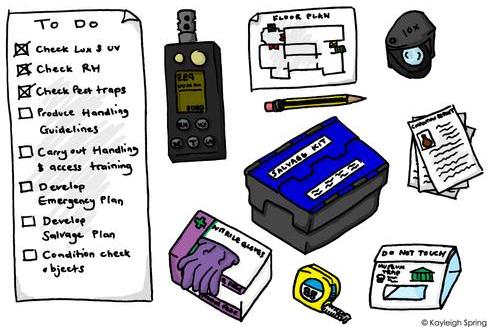 TO DO
Check Lux & UV
Check RH
Check Pest traps
Produce Handling
Guidelines
Carry out Handling
& access training
Develop
Emergency Plan
Develop
Salvage Plan
Condition check
objects
FLOOR PLAN
10x
SALVAGE KIT
CONDITION REPORT
NITRILE GLOVES
DO NOT TOUCH
MUSEUM
TRAP
© Kayleigh Spring